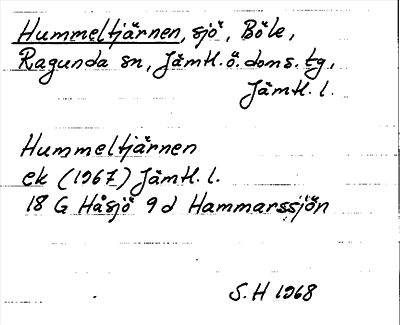 Hummeltjärnen, sjö, Böle,
Ragunda sn, Jämtl. ö. doms. tg,
Jämtl. l.
Hummeltjärnen
ek (1967) Jämtl. l.
18 G Håsjö 9d Hammarssjön
S.H 1968